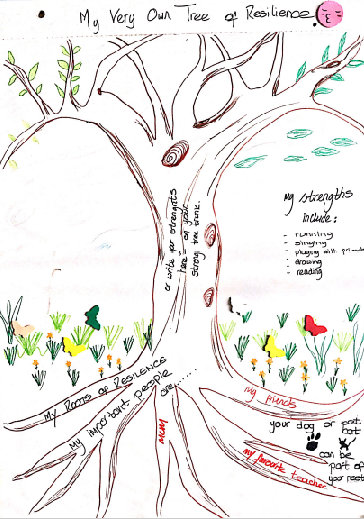 My Very Own Tree of Resilience.
My strengths
include:
- running
- singing
- playing with friends
- drawing
- reading
or write your strengths
here - on your
strong tree trunk.
My Roots of Resilience
My important people
are.......
my friends
MUM
my favourite teacher
your dog or
can be
part of
your roots